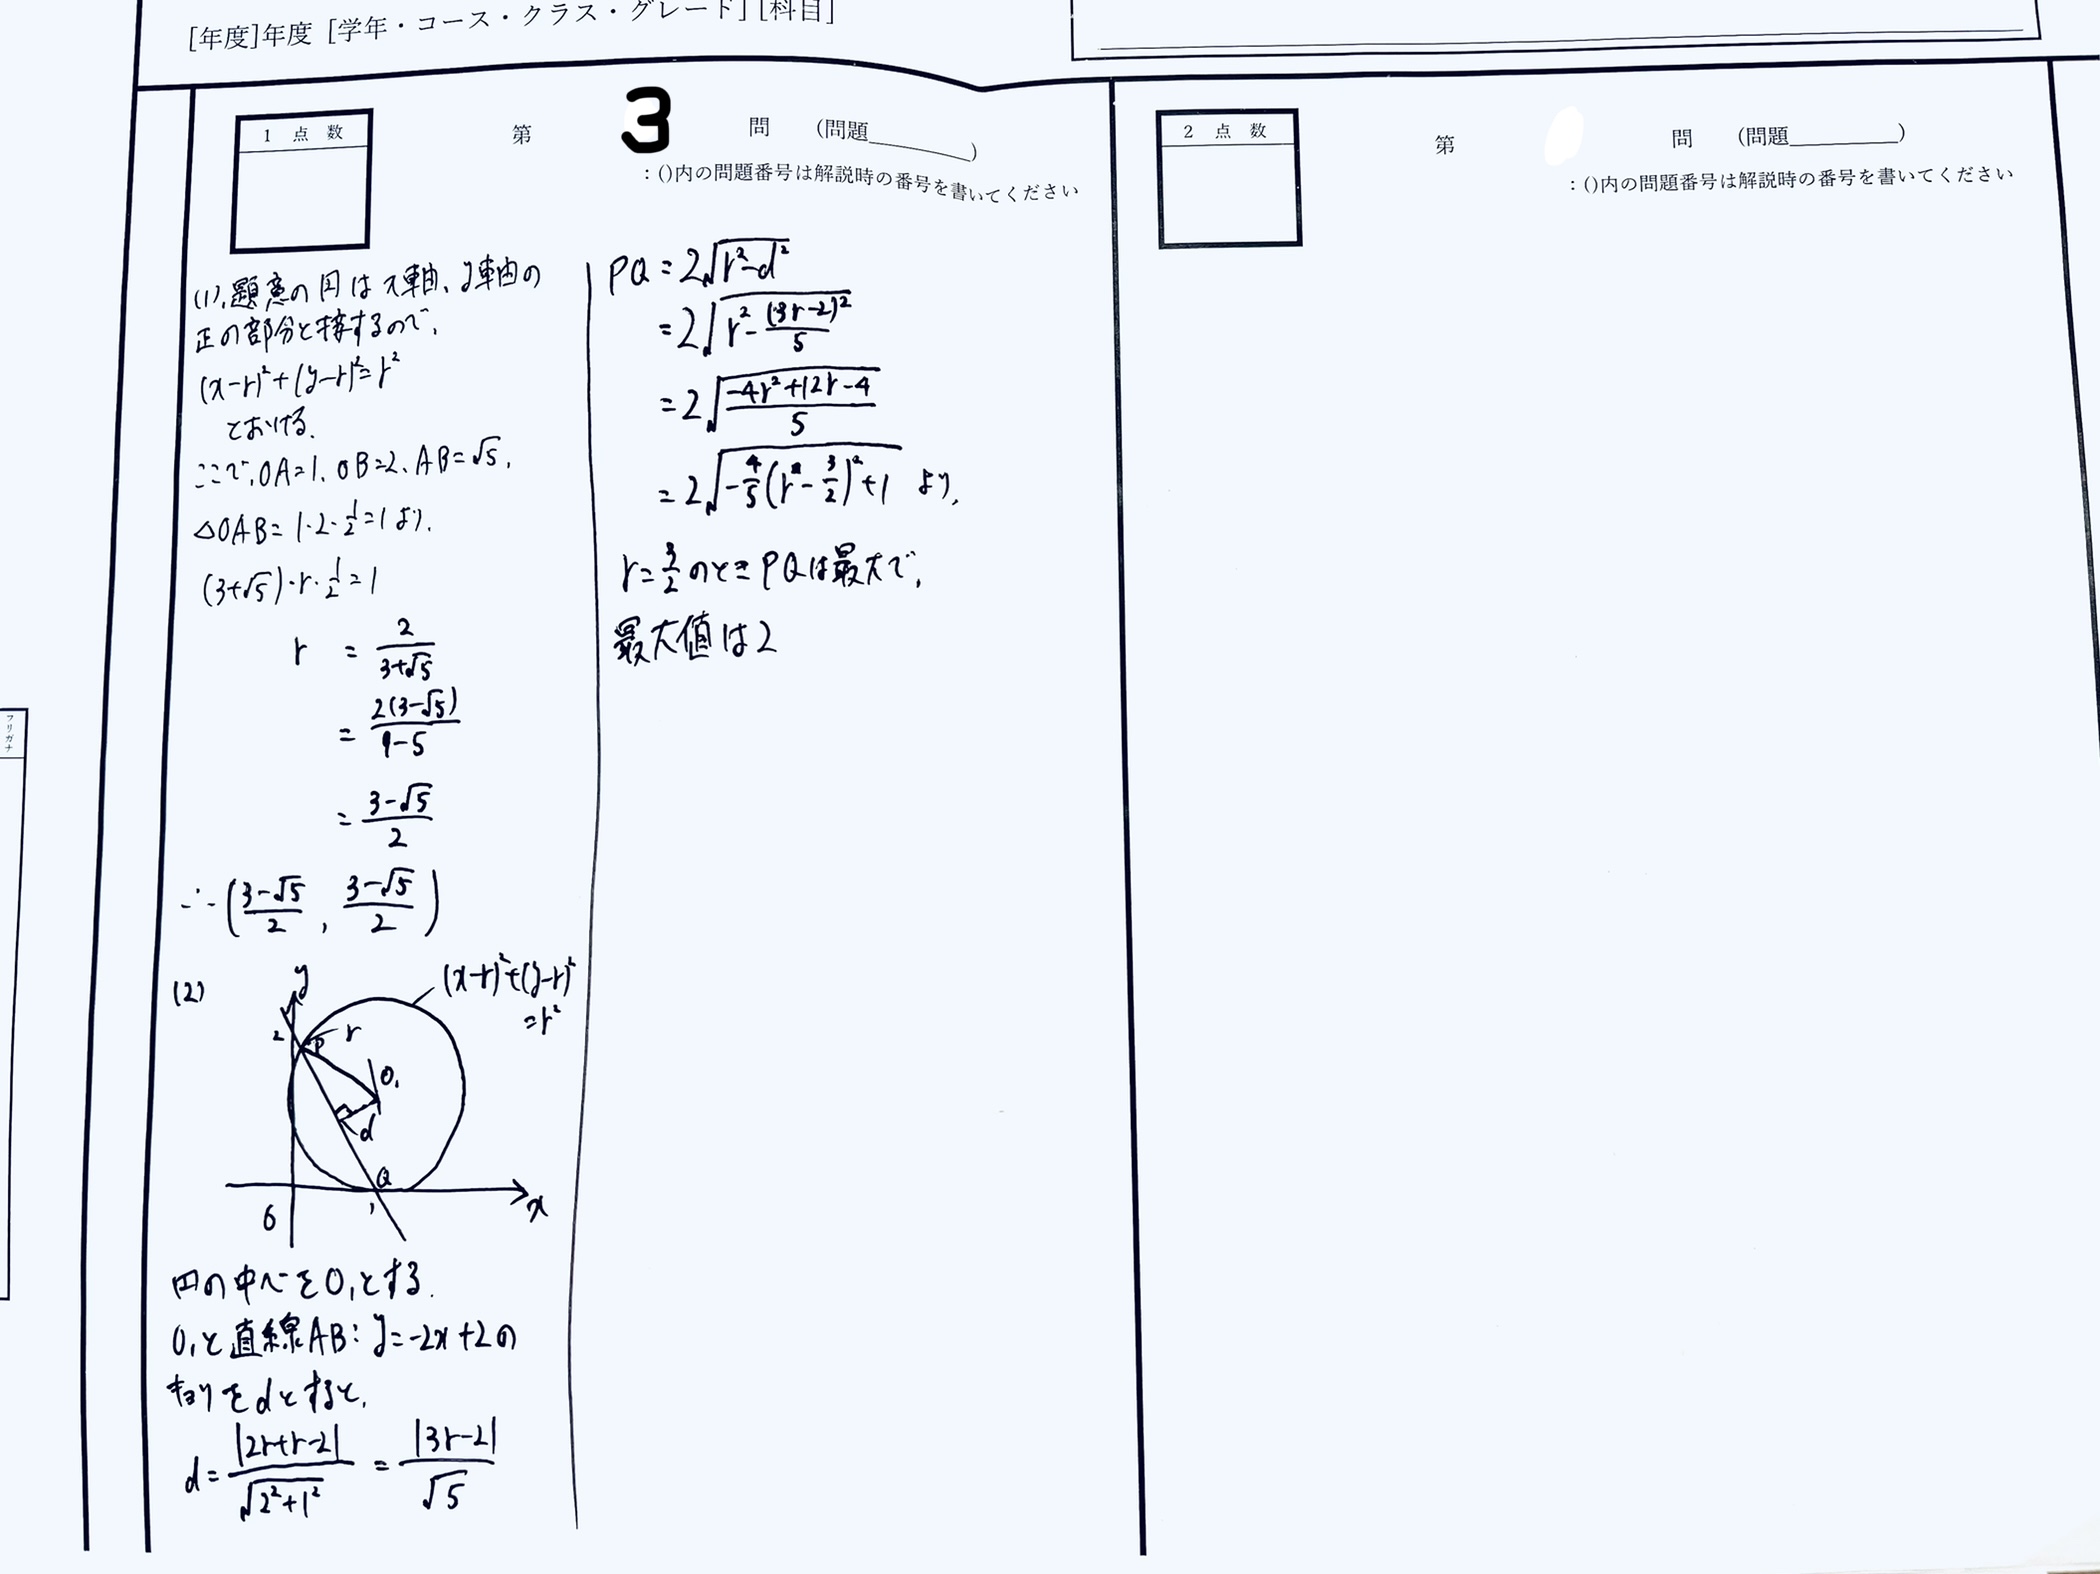 [年度]年度 [学年・コース・クラス・グレード] [科目]
1 点 数
第 3 問 (問題 )
:()内の問題番号は解説時の番号を書いてください
(1), 題意の円はx軸、y軸の
正の部分と接するので、
(x-r)²+(y-r)²=r²
とおける.
ここで, OA=1, OB=2, AB=√5,
△OAB=1・2・1/2=1より,
(3+√5)・r・1/2=1
r = 2/(3+√5)
= 2(3-√5)/(9-5)
= (3-√5)/2
∴((3-√5)/2, (3-√5)/2)
(2)
y
(x-r)²+(y-r)²
=r²
2
P
r
O₁
d
Q
1
x
O
円の中心をO₁とする.
O₁と直線AB: y=-2x+2の
キョリをdとすると,
d= |2r+r-2|/√(2²+1²) = |3r-2|/√5
PQ=2√(r²-d²)
=2√(r²-(3r-2)²/5)
=2√((-4r²+12r-4)/5)
=2√(-4/5(r-3/2)²+1) より,
r=3/2のときPQは最大で,
最大値は2
2 点 数
第 問 (問題 )
:()内の問題番号は解説時の番号を書いてください
フリガナ